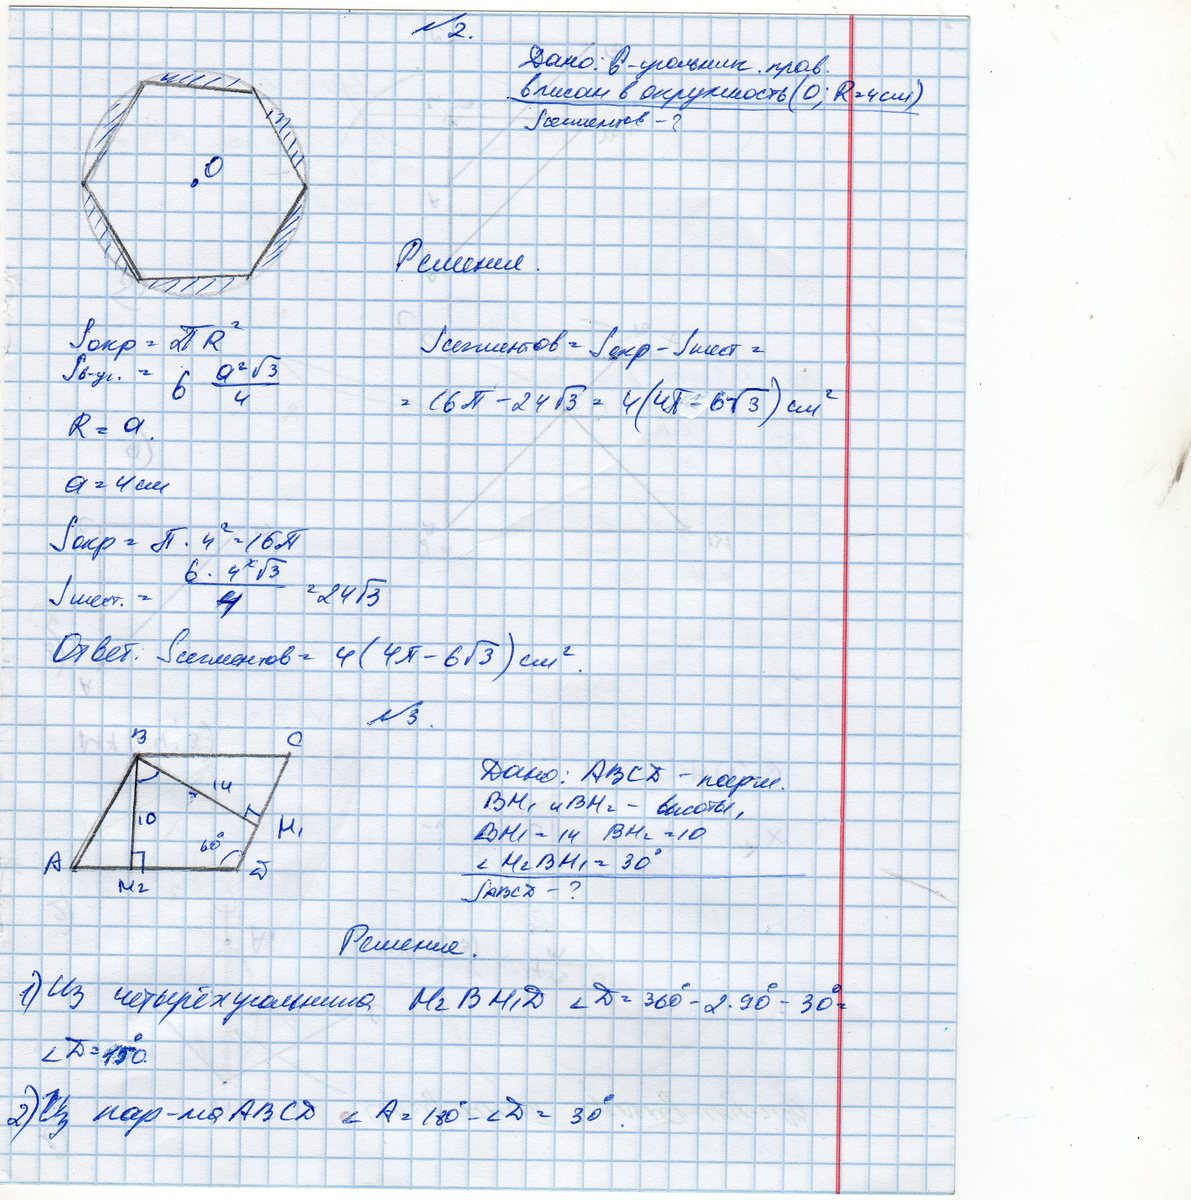 №2.
Дано: 6-угольник. прав.
вписан в окружность (O; R=4см)
Sсегментов - ?
O
Решение.
Sокр = πR²
S6-уг. = 6 a²√3/4
R = a.
a = 4см
Sокр = π · 4² = 16π
Sшест. = 6 · 4²√3/4 = 24√3
Sсегментов = Sокр - Sшест =
= 16π - 24√3 = 4(4π - 6√3) см²
Ответ: Sсегментов = 4(4π - 6√3) см².
№3.
B C
14
10
H₁
60°
A H₂ D
Дано: ABCD - парм.
BH₁ и BH₂ - высоты,
BH₁ = 14 BH₂ = 10
∠H₂BH₁ = 30°
SABCD - ?
Решение.
1) Из четырёхугольника H₂BH₁D ∠D = 360° - 2·90° - 30° =
∠D = 150°.
2) Из пар-ма ABCD ∠A = 180° - ∠D = 30°.